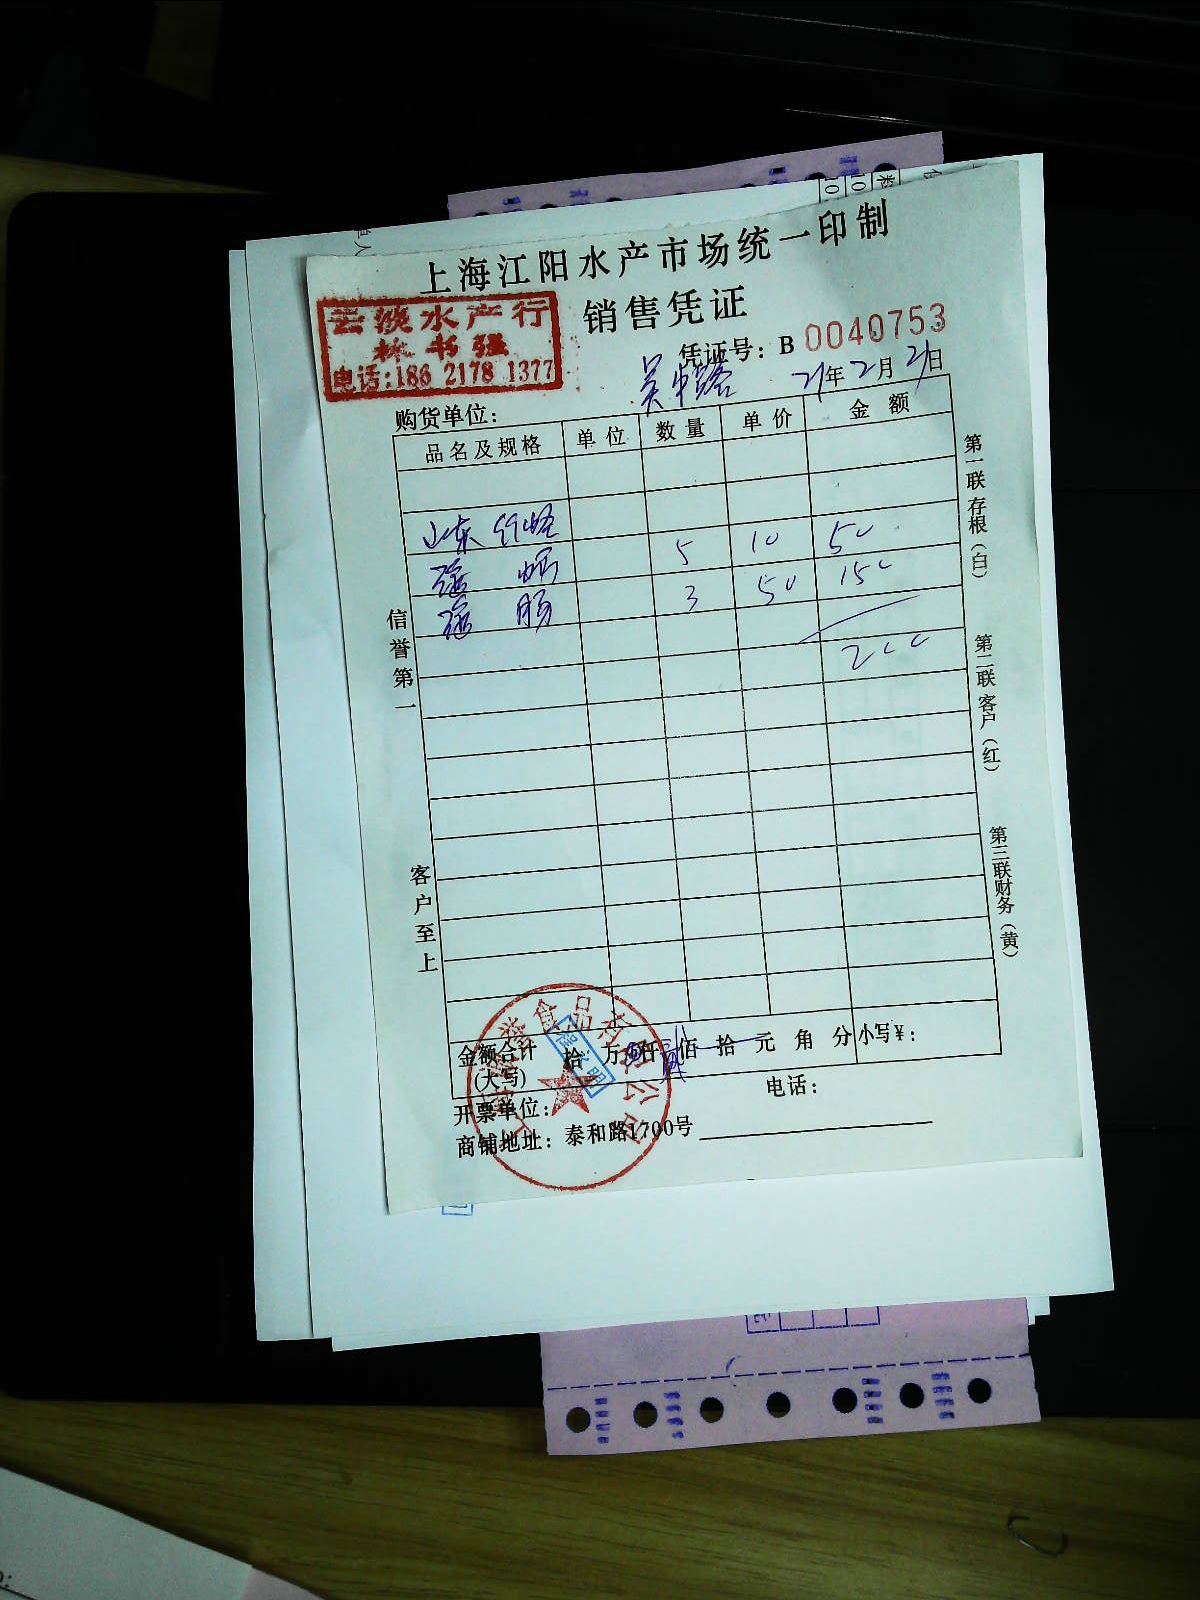 上海江阳水产市场统一印制
销售凭证
云淡水产行
林书强
电话:186 2178 1377
凭证号: B 0040753
21年2月21日
购货单位:
品名及规格 单位 数量 单价 金额
山东
5 10 50
3 50 150
200
信誉第一
客户至上
第一联存根(白)
第二联客户(红)
第三联财务(黄)
金额合计(大写) 拾 万 仟 佰 拾 元 角 分 小写¥:
开票单位: 电话:
商铺地址: 泰和路1700号